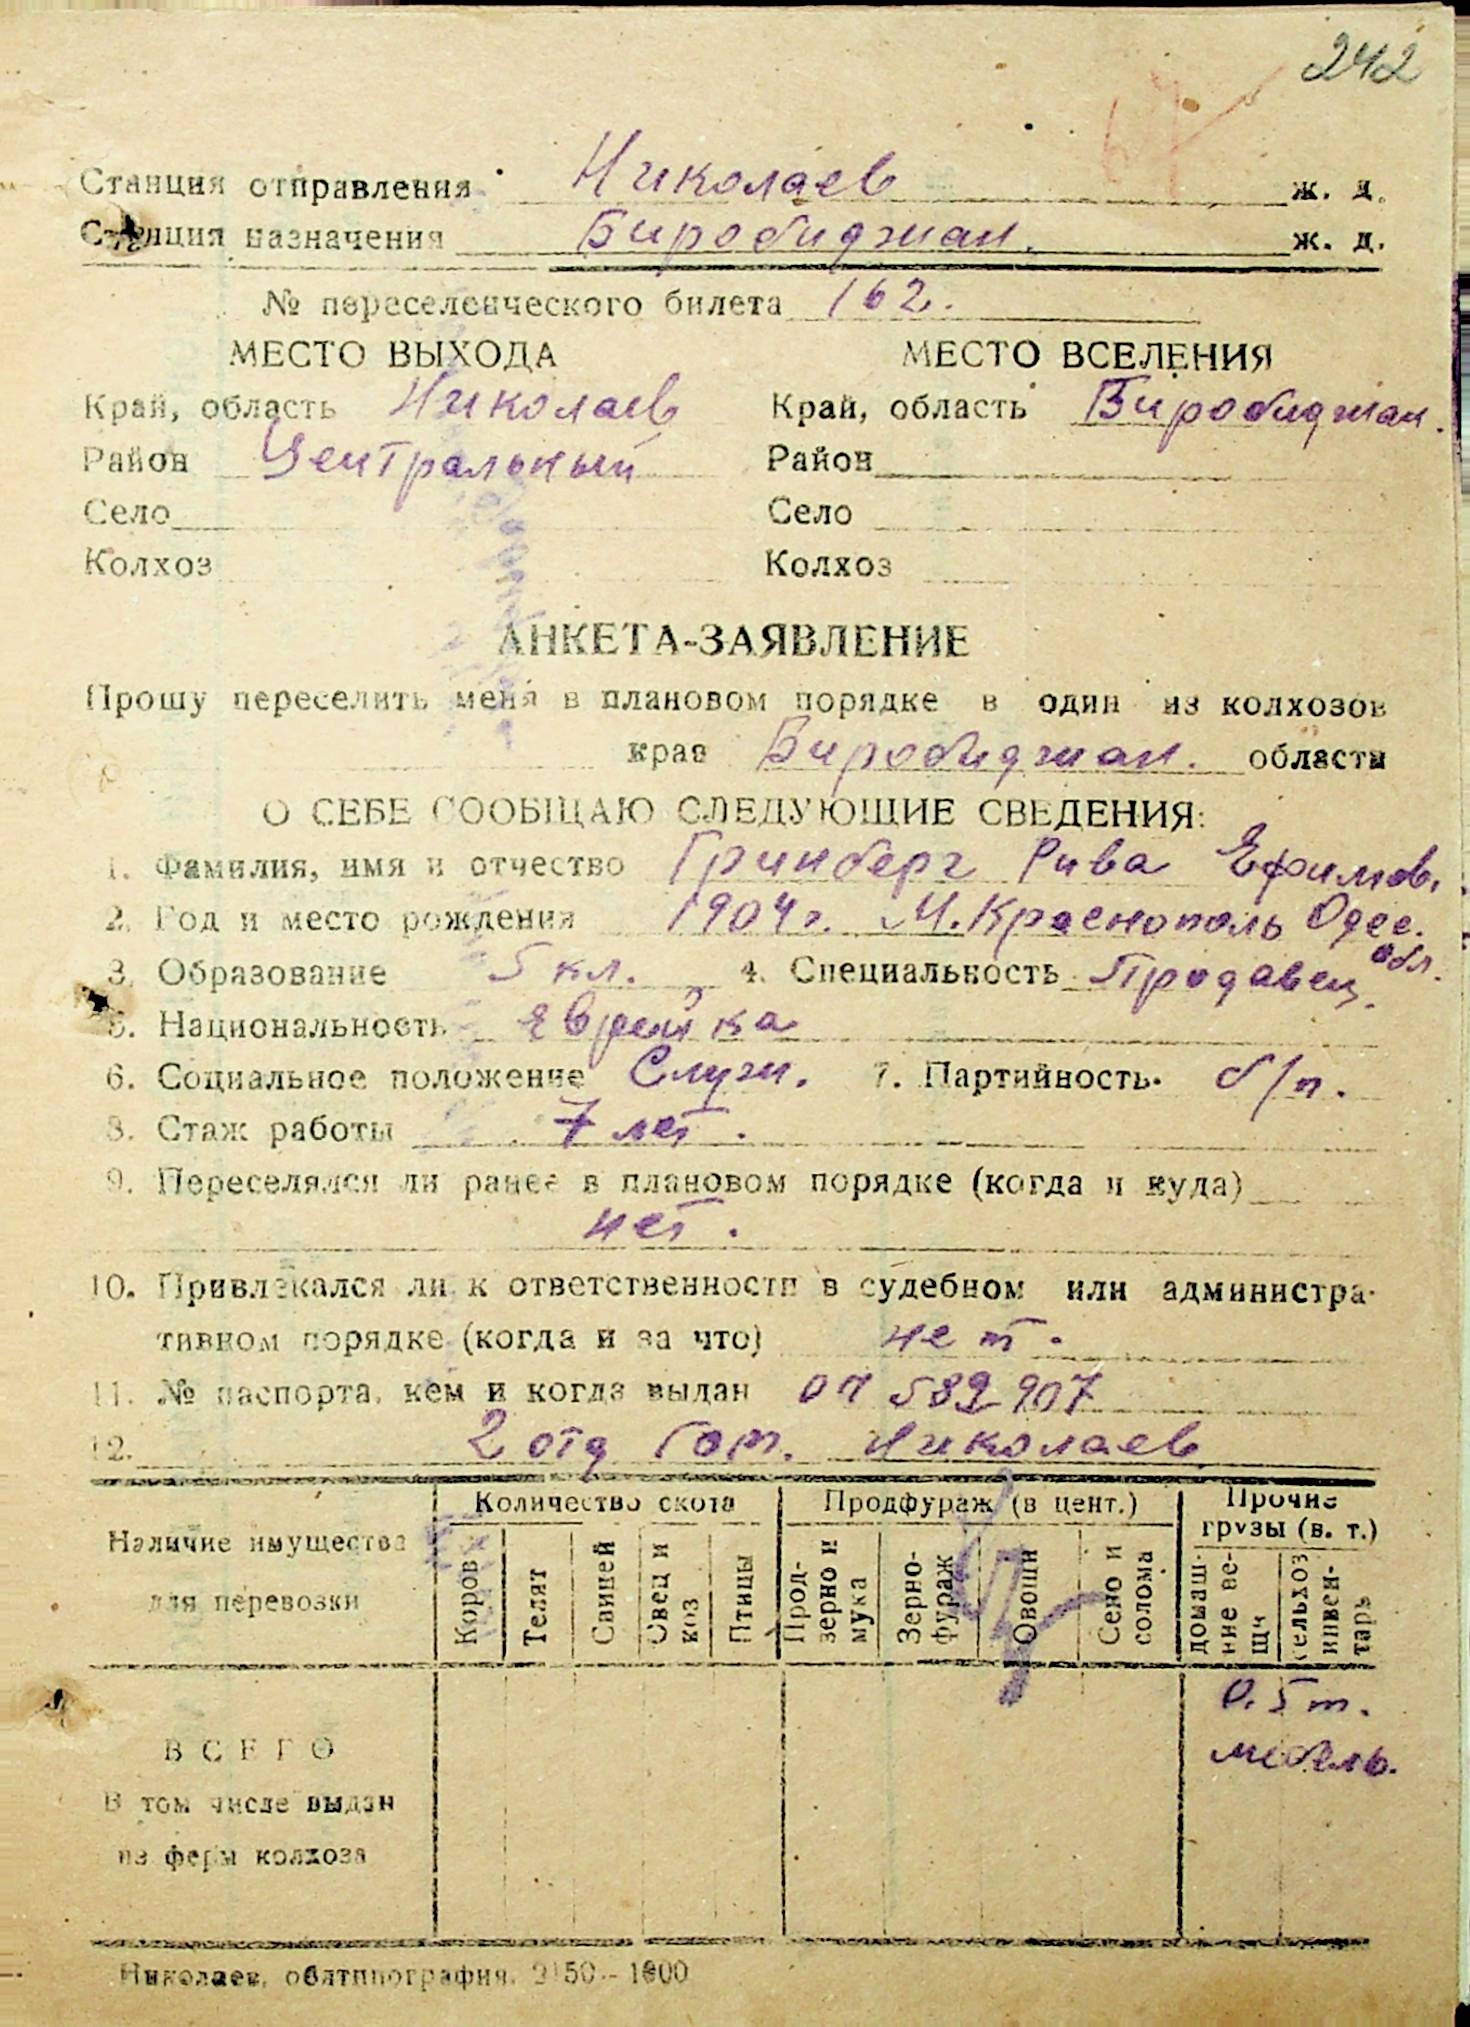 242
Станция отправления Николаев ж. д.
Станция назначения Биробиджан. ж. д.
№ переселенческого билета 162.
МЕСТО ВЫХОДА МЕСТО ВСЕЛЕНИЯ
Край, область Николаев Край, область Биробиджан.
Район Центральный Район
Село Село
Колхоз Колхоз
АНКЕТА-ЗАЯВЛЕНИЕ
Прошу переселить меня в плановом порядке в один из колхозов
края Биробиджан. области
О СЕБЕ СООБЩАЮ СЛЕДУЮЩИЕ СВЕДЕНИЯ:
1. Фамилия, имя и отчество Гринберг Рива Ефимов.
2. Год и место рождения 1904 г. М. Краснополь Одес. обл.
3. Образование 5 кл. 4. Специальность Продавец.
5. Национальность еврейка
6. Социальное положение Служ. 7. Партийность б/п.
8. Стаж работы 7 лет.
9. Переселялся ли ранее в плановом порядке (когда и куда)
нет.
10. Привлекался ли к ответственности в судебном или администра-
тивном порядке (когда и за что) нет.
11. № паспорта, кем и когда выдан 589907
12. 2 отд Гом. Николаев
Наличие имущества для перевозки
Количество скота Продфураж (в цент.) Прочие грузы (в. т.)
Коров Телят Свиней Овец и коз Птицы Прод-зерно и мука Зерно-фураж Овощи Сено и солома домаш-ние ве-щи сельхоз инвен-тарь
ВСЕГО 0.5 т.
мебель.
В том числе выдан
из ферм колхоза
Николаев, облтипография.